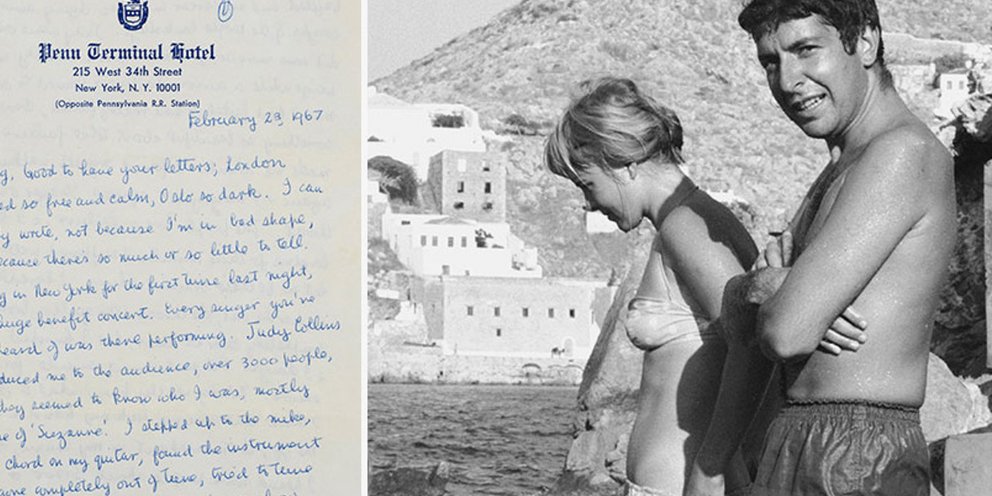 Penn Terminal Hotel
215 West 34th Street
New York, N. Y. 10001
(Opposite Pennsylvania R.R. Station)
February 23, 1967
g. Good to have your letters; London
ed so free and calm, Oslo so dark. I can
y write, not because I'm in bad shape,
cause there's so much or so little to tell.
g in New York for the first time last night,
huge benefit concert. Every singer you've
heard of was there performing. Judy Collins
duced me to the audience, over 3000 people,
they seemed to know who I was, mostly
e of 'Suzanne'. I stepped up to the mike,
chord on my guitar, found the instrument
gone completely out of tune, tried to tune